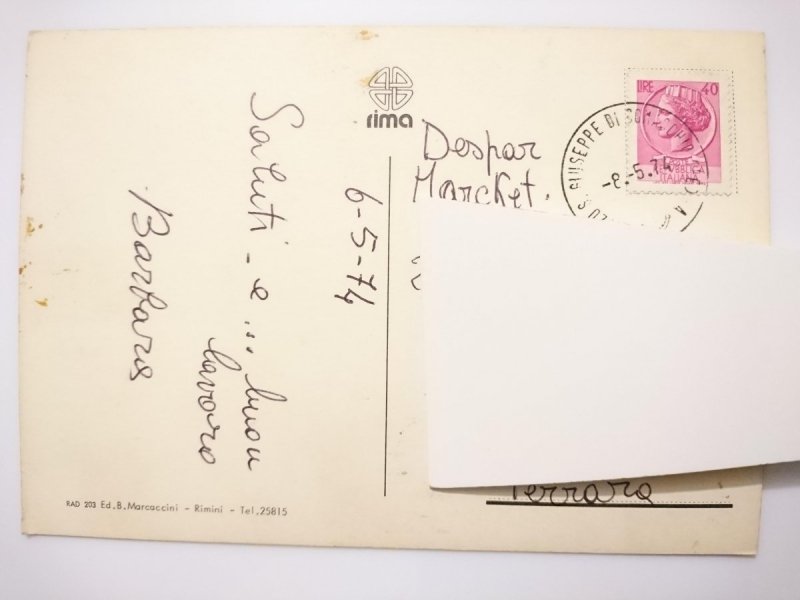 Saluti - e ... buon
lavoro
Barbara
6-5-74
rima
Despar
Marcket.
Ferrara
LIRE 40
REPUBBLICA
ITALIANA
S. GIUSEPPE DI
-8.-5.74
RAD 203 Ed.B.Marcaccini - Rimini - Tel.25815